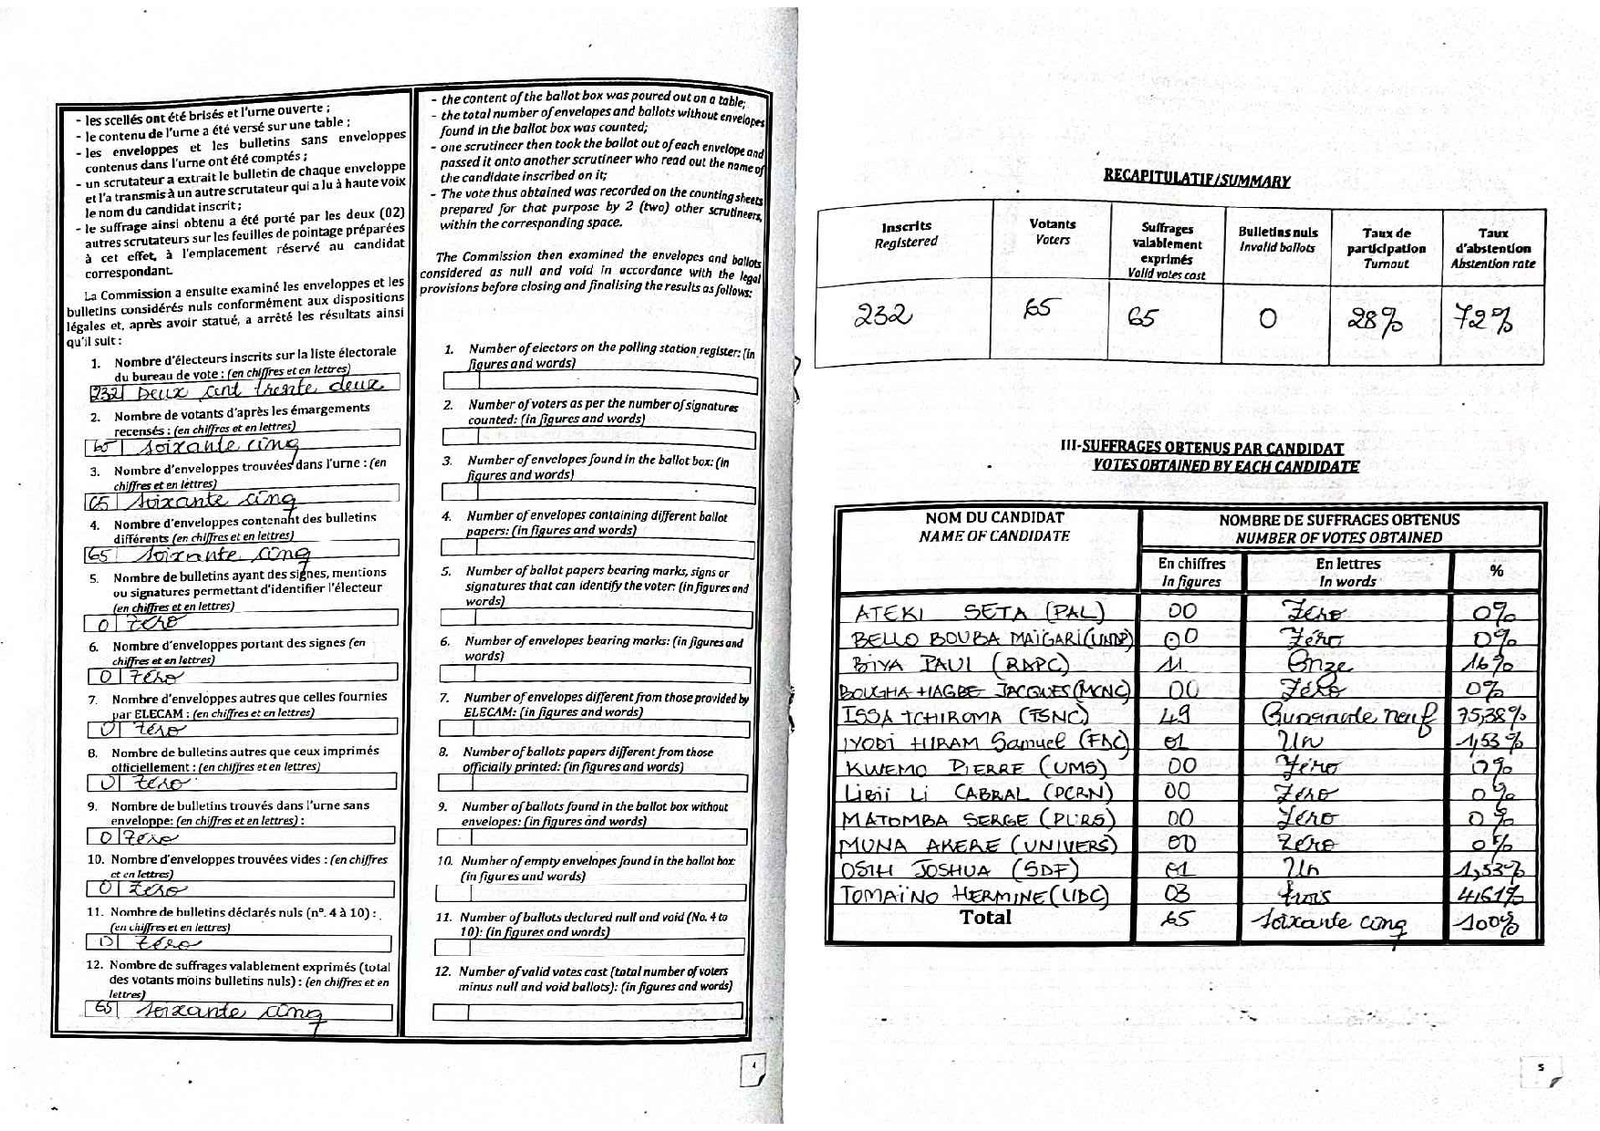 - les scellés ont été brisés et l'urne ouverte ;
- le contenu de l'urne a été versé sur une table ;
- les enveloppes et les bulletins sans enveloppes
contenus dans l'urne ont été comptés ;
- un scrutateur a extrait le bulletin de chaque enveloppe
et l'a transmis à un autre scrutateur qui a lu à haute voix
le nom du candidat inscrit ;
- le suffrage ainsi obtenu a été porté par les deux (02)
autres scrutateurs sur les feuilles de pointage préparées
à cet effet, à l'emplacement réservé au candidat
correspondant.
La Commission a ensuite examiné les enveloppes et les
bulletins considérés nuls conformément aux dispositions
légales et, après avoir statué, a arrêté les résultats ainsi
qu'il suit :
1. Nombre d'électeurs inscrits sur la liste électorale
du bureau de vote : (en chiffres et en lettres)
232 Deux cent trente deux
2. Nombre de votants d'après les émargements
recensés : (en chiffres et en lettres)
65 soixante cinq
3. Nombre d'enveloppes trouvées dans l'urne : (en
chiffres et en lettres)
65 soixante cinq
4. Nombre d'enveloppes contenant des bulletins
différents (en chiffres et en lettres)
65 soixante cinq
5. Nombre de bulletins ayant des signes, mentions
ou signatures permettant d'identifier l'électeur
(en chiffres et en lettres)
0 zéro
6. Nombre d'enveloppes portant des signes (en
chiffres et en lettres)
0 zéro
7. Nombre d'enveloppes autres que celles fournies
par ELECAM : (en chiffres et en lettres)
0 zéro
8. Nombre de bulletins autres que ceux imprimés
officiellement : (en chiffres et en lettres)
0 zéro
9. Nombre de bulletins trouvés dans l'urne sans
enveloppe: (en chiffres et en lettres) :
0 zéro
10. Nombre d'enveloppes trouvées vides : (en chiffres
et en lettres)
0 zéro
11. Nombre de bulletins déclarés nuls (n°. 4 à 10) :
(en chiffres et en lettres)
0 zéro
12. Nombre de suffrages valablement exprimés (total
des votants moins bulletins nuls) : (en chiffres et en
lettres)
65 soixante cinq
- the content of the ballot box was poured out on a table;
- the total number of envelopes and ballots without envelopes
found in the ballot box was counted;
- one scrutineer then took the ballot out of each envelope and
passed it onto another scrutineer who read out the name of
the candidate inscribed on it;
- The vote thus obtained was recorded on the counting sheets
prepared for that purpose by 2 (two) other scrutineers,
within the corresponding space.
The Commission then examined the envelopes and ballots
considered as null and void in accordance with the legal
provisions before closing and finalising the results as follows:
1. Number of electors on the polling station register: (in
figures and words)
2. Number of voters as per the number of signatures
counted: (in figures and words)
3. Number of envelopes found in the ballot box: (in
figures and words)
4. Number of envelopes containing different ballot
papers: (in figures and words)
5. Number of ballot papers bearing marks, signs or
signatures that can identify the voter: (in figures and
words)
6. Number of envelopes bearing marks: (in figures and
words)
7. Number of envelopes different from those provided by
ELECAM: (in figures and words)
8. Number of ballots papers different from those
officially printed: (in figures and words)
9. Number of ballots found in the ballot box without
envelopes: (in figures and words)
10. Number of empty envelopes found in the ballot box:
(in figures and words)
11. Number of ballots declared null and void (No. 4 to
10): (in figures and words)
12. Number of valid votes cast (total number of voters
minus null and void ballots): (in figures and words)
4
RECAPITULATIF/SUMMARY
Inscrits Registered Votants Voters Suffrages valablement exprimés Valid votes cast Bulletins nuls Invalid ballots Taux de participation Turnout Taux d'abstention Abstention rate
232 65 65 0 28% 72%
III-SUFFRAGES OBTENUS PAR CANDIDAT
VOTES OBTAINED BY EACH CANDIDATE
NOM DU CANDIDAT NOMBRE DE SUFFRAGES OBTENUS
NAME OF CANDIDATE NUMBER OF VOTES OBTAINED
En chiffres En lettres %
In figures In words
ATEKI SETA (PAL) 00 Zéro 0%
BELLO BOUBA MAÏGARI (UNDP) 00 Zéro 0%
BIYA PAUL (RDPC) 11 Onze 16%
BOUGHA HAGBE JACQUES (MCNC) 00 Zéro 0%
ISSA TCHIROMA (FSNC) 49 Quarante neuf 75,38%
IYODI HIRAM Samuel (FDC) 01 Un 1,53%
KWEMO PIERRE (UMS) 00 Zéro 0%
LIBII LI CABRAL (PCRN) 00 Zéro 0%
MATOMBA SERGE (PURS) 00 Zéro 0%
MUNA AKERE (UNIVERS) 00 Zéro 0%
OSIH JOSHUA (SDF) 01 Un 1,53%
TOMAÏNO HERMINE (UDC) 03 trois 4,61%
Total 65 soixante cinq 100%
5